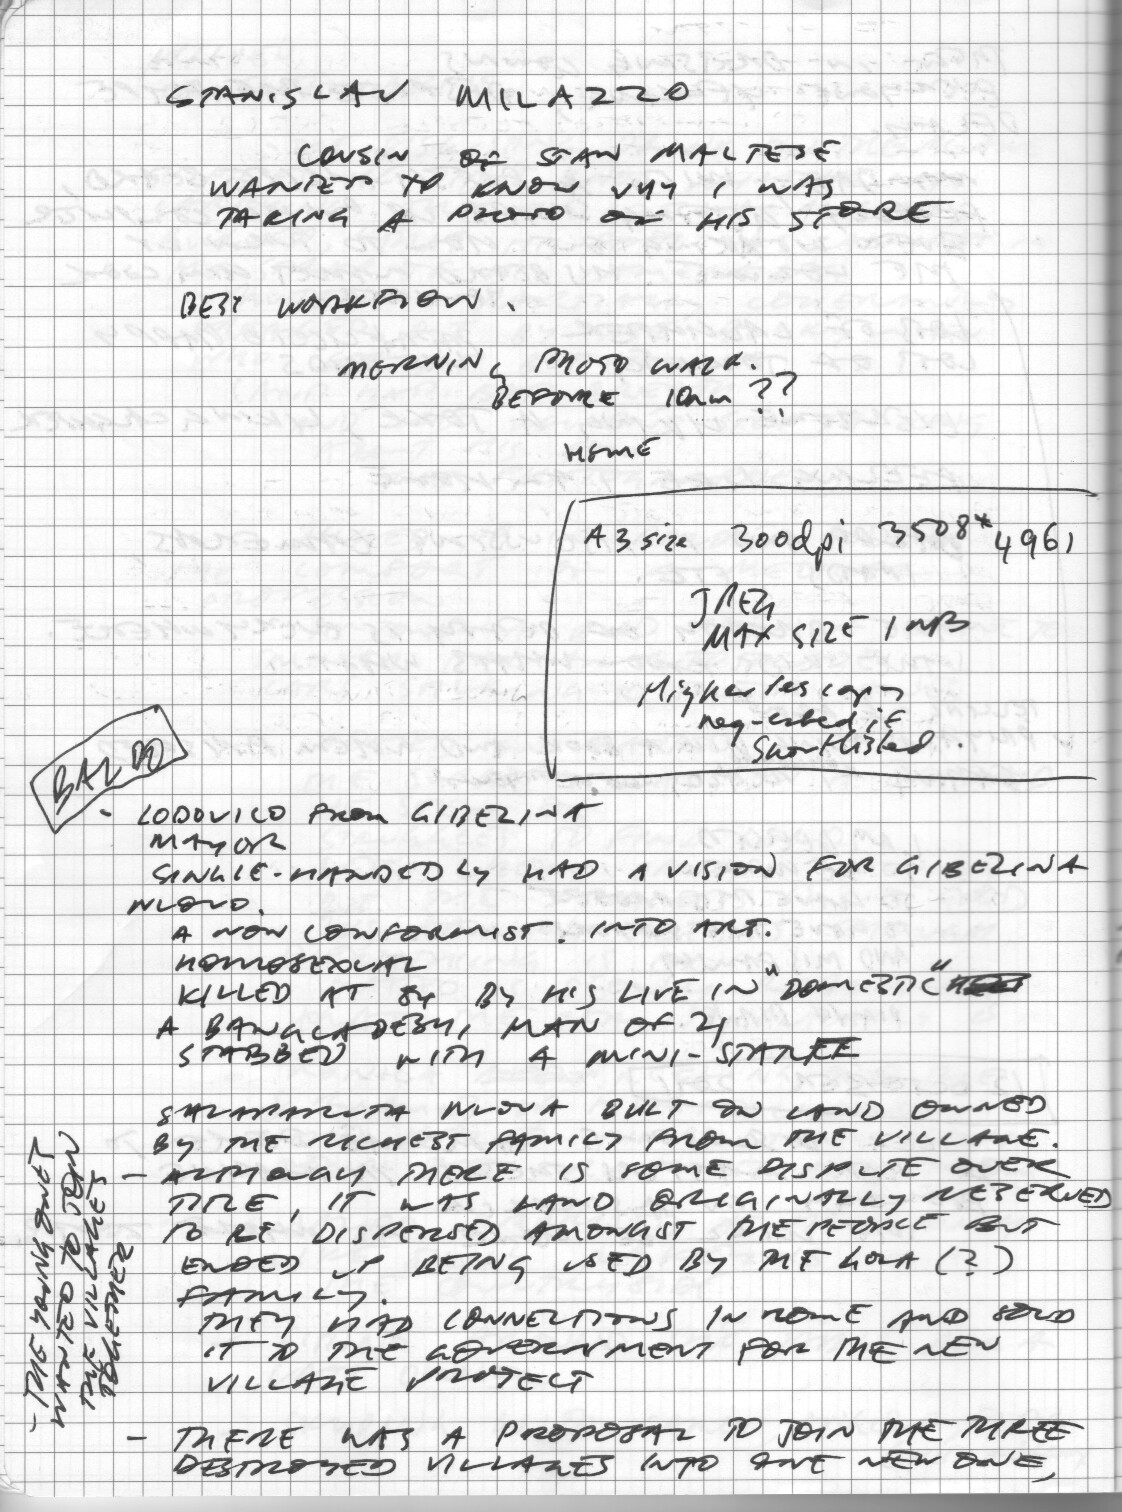 STANISLAV MILAZZO
COUSIN OF STAN MALTESE
WANTED TO KNOW WHY I WAS
TAKING A PHOTO OF HIS STORE
BEST WORKFLOW.
MORNING PHOTO WALK.
BEFORE 10am ??
HOME
A3 size 300dpi 3508*4961
JPEG
MAX SIZE 1 MB
Higher res copy
requested if
Shortlisted.
BALDO
- LODOVICO FROM GIBELINA
MAYOR
SINGLE-HANDEDLY HAD A VISION FOR GIBELINA
NUOVO.
A NON CONFORMIST. INTO ART.
HOMOSEXUAL
KILLED AT 84 BY HIS LIVE IN "DOMESTIC"
A BANGLADESHI MAN OF 21
STABBED WITH A MINI-STAKE
SALAPARUTA NUOVA BUILT ON LAND OWNED
BY THE RICHEST FAMILY FROM THE VILLAGE.
- ALTHOUGH THERE IS SOME DISPUTE OVER
TITLE, IT WAS LAND ORIGINALLY RESERVED
TO BE DISPERSED AMONGST THE PEOPLE BUT
ENDED UP BEING USED BY THE LOLA (?)
FAMILY.
THEY HAD CONNECTIONS IN ROME AND SOLD
IT TO THE GOVERNMENT FOR THE NEW
VILLAGE PROJECT
- THERE WAS A PROPOSAL TO JOIN THE THREE
DESTROYED VILLAGES INTO ONE NEW ONE,
- THE YOUNG DON'T
WANTED TO JOIN
THE VILLAGES
TOGETHER